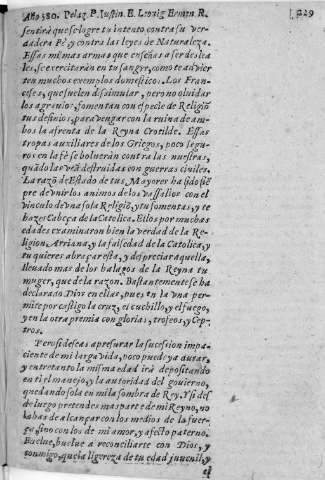 Año 580. Pelag. P. Iustin. E. Leovig Ermen R. 229
sentirà que se logre tu intento contra su ver-
dadera Fè, y contra las leyes de Naturaleza.
Essas mismas armas que enseñas a ser deslea-
les, se exercitaràn en tu sangre, como te advier-
ten muchos exemplos domesticos. Los Fran-
ceses, que suelen dissimular, pero no olvidar
los agravios, fomentan con especie de Religiõ
tus desinios, para vengar con la ruina de am-
bos la afrenta de la Reyna Crotilde. Essas
tropas auxiliares de los Griegos, poco segu-
ros en la fè se bolveràn contra las nuestras,
quãdo las veã destruidas con guerras civiles.
La razõ de Estado de tus Mayores ha sido siẽ
pre de vnir los animos de los vassallos con el
vinculo de vna sola Religiõ, y tu fomentas, y te
hazes Cabeça de la Catolica. Ellos por muchas
edades examinaron bien la verdad de la Re-
ligion Arriana, y la falsedad de la Catolica, y
tu quieres abraçar esta, y despreciar aquella,
llevado mas de los halagos de la Reyna tu
muger, que de la razon. Bastantemente se ha
declarado Dios en ellas, pues en la vna per-
mite por castigo la cruz, el cuchillo, y el fuego,
y en la otra premia con glorias, trofeos, y Cep-
tros.
Pero si deseas apresurar la sucesion impa-
ciente de mi larga vida, poco puede ya durar,
y entretanto la misma edad irà depositando
en ti el manejo, y la autoridad del govierno,
quedando sola en mi la sombra de Rey. Y si des
de luego pretendes mas parte de mi Reyno, no
la has de alcançar con los medios de la fuer-
ça, sino con los de mi amor, y afecto paterno.
Buelve, buelve a reconciliarte con Dios, y
conmigo, que la ligereza de tu edad juvenil, y
el